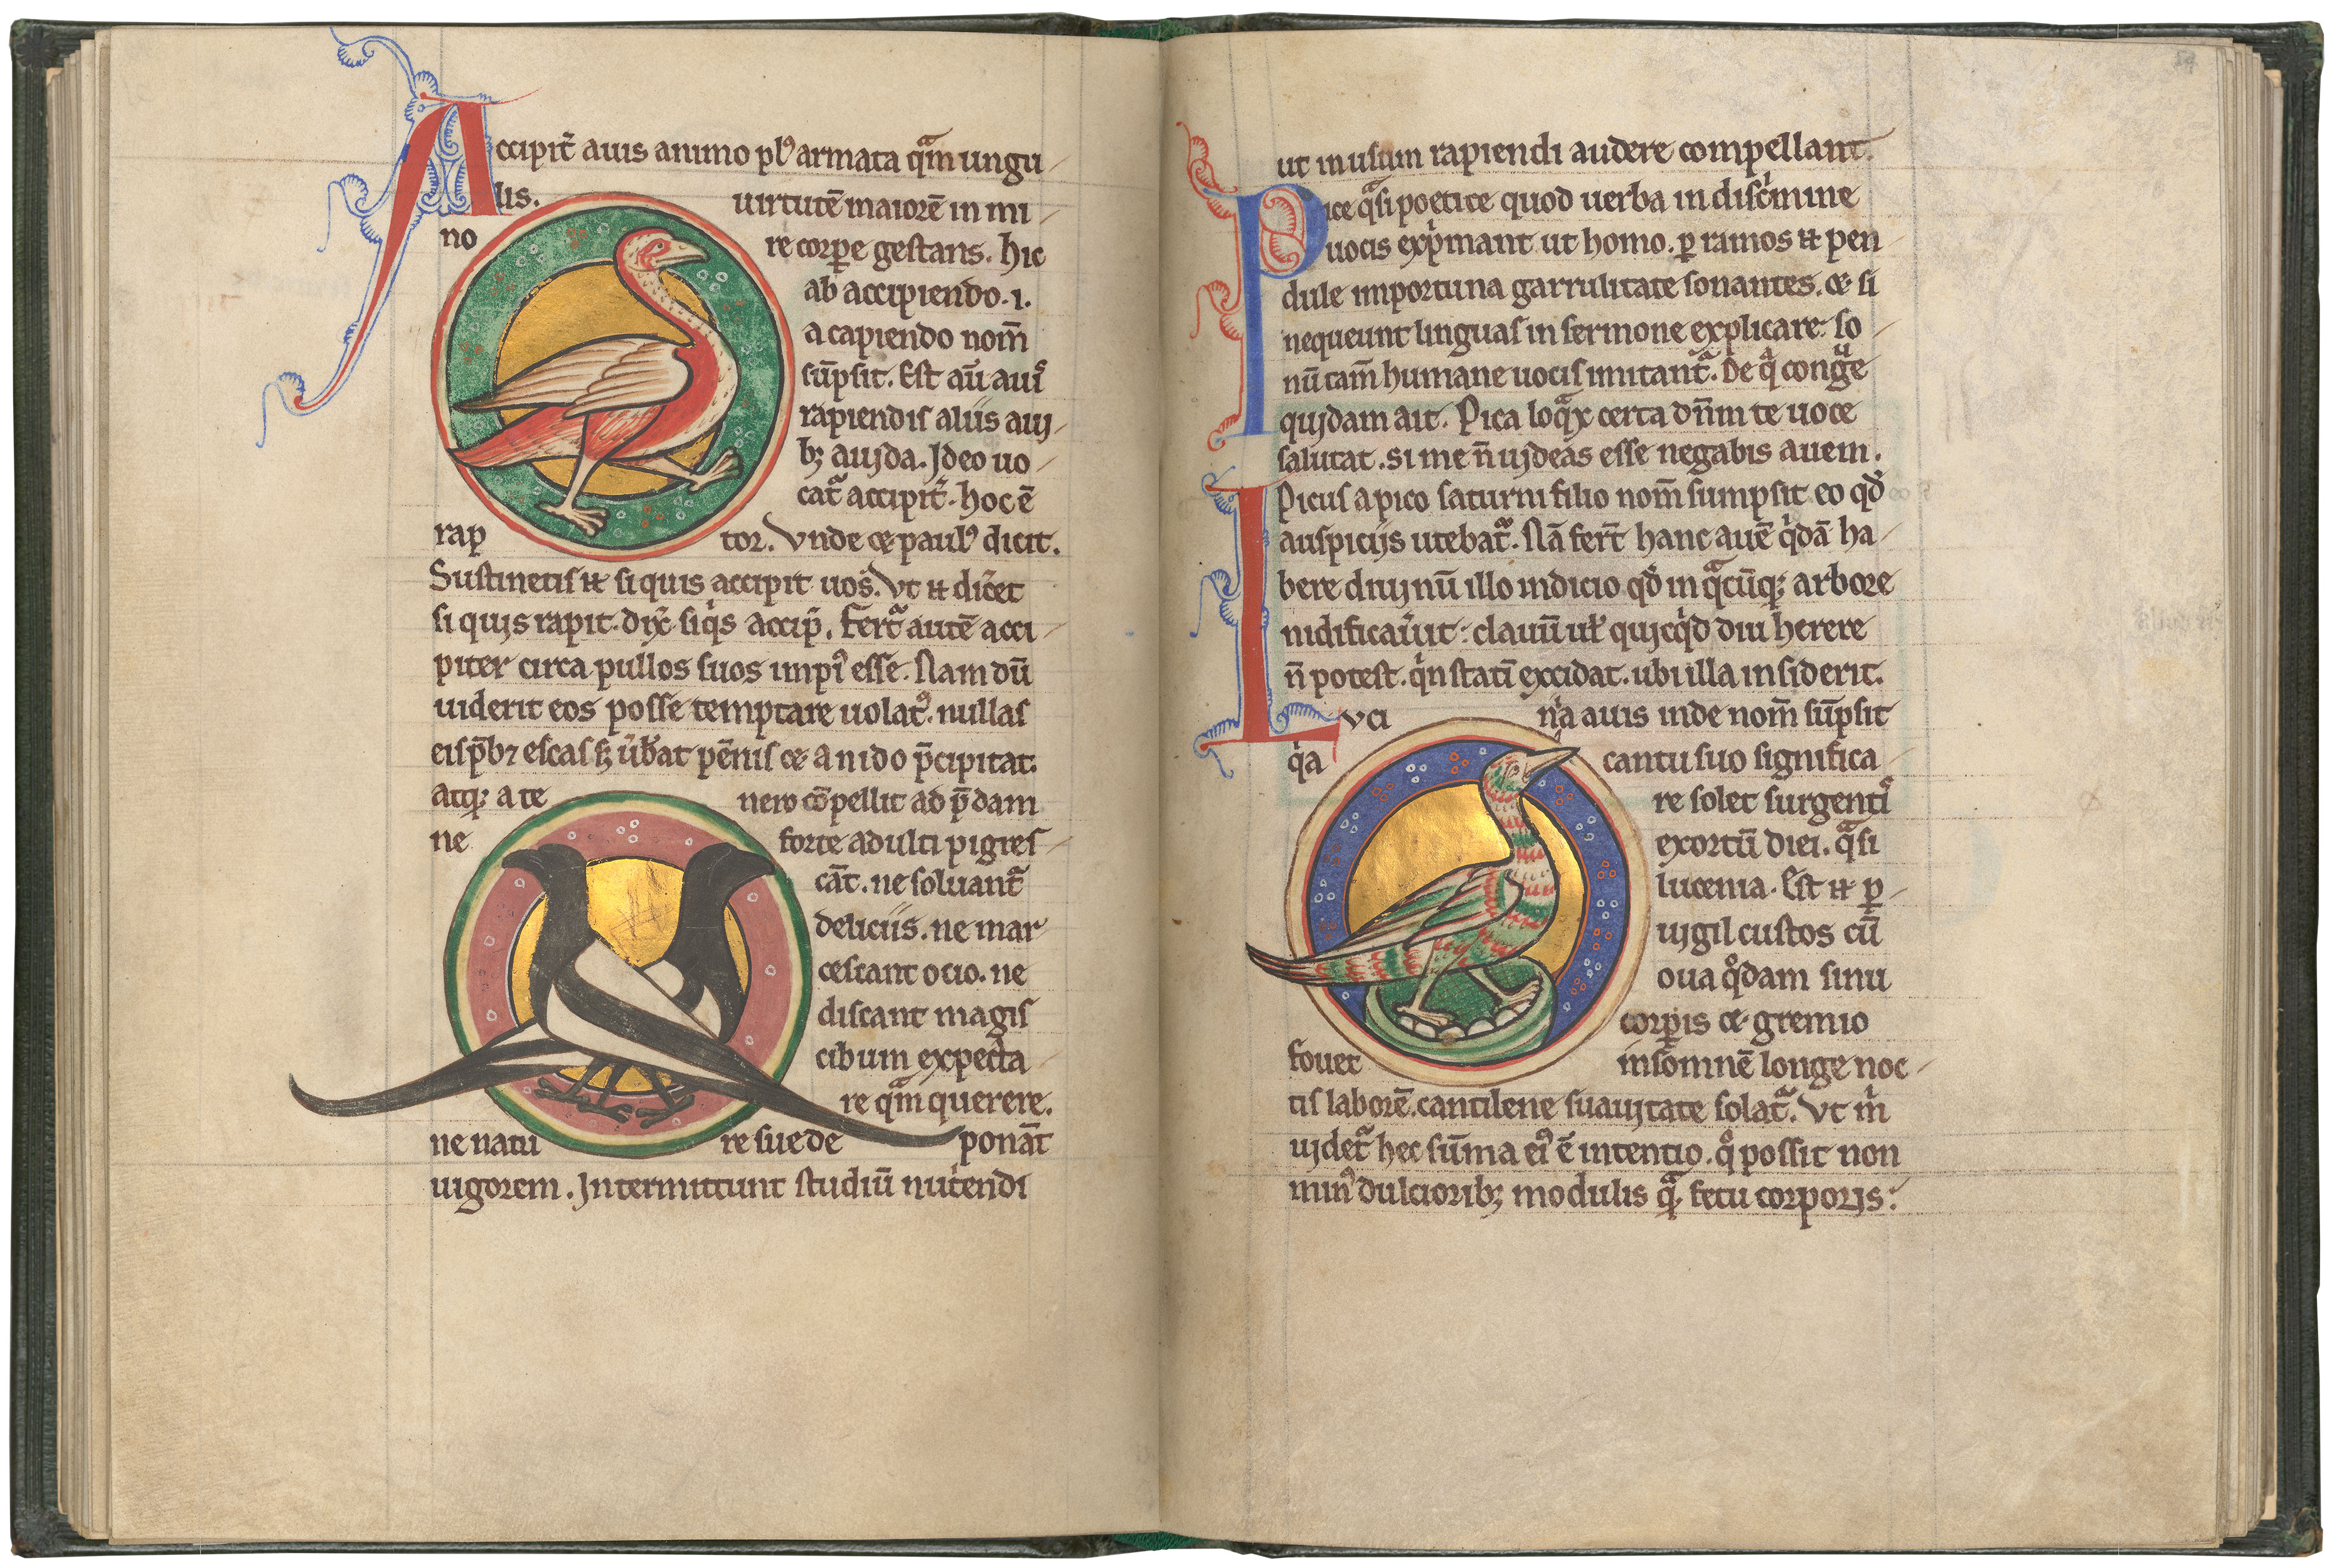 Accipit̃ auis animo pl᾽ armata qᷓm ungu
lis. uirtutē maiorē in mi
no re corꝑe gestans. hic
ab accipiendo .i.
a capiendo nom̄
sūpsit. Est aūi auiᷤ
rapiendis aliis aui
bꝫ auida. Ideo uo
cat᷑ accipit̃. hoc ē
rap tor. Vnde ⁊ paul᾽ dicit.
Sustinetis eĩ si quis accipit uos. Vt eĩ dic̃et
si quis rapit. dix̃ siqͥs accip̃. Fert᷑ autē acci
piter circa pullos suos impi᾽ esse. Nam dū
uiderit eos posse temptare uolat᾽. nullas
eis p̄bꝫ escas sꝫ u̇ƀat pēnis ⁊ a nido p̄cipitat.
atqꝫ a te nero cōpellit ad p̄dam
ne forte adulti pigres
cāt. ne soluant᷑
deliciis. ne mar
cescant ocio. ne
discant magis
cibum expecta
re qᷓm querere.
ne natu re sue de ponāt
uigorem. Intermittunt studiū nut̾endi
ut in usum rapiendi audere compellant.
Pice qᷓsi poetice quod uerba in disc̾mine
uocis exp̾mant ut homo. ꝑ ramos eĩ pen
dule importuna garrulitate sonantes. ⁊ si
nequeunt linguas in sermone explicare: so
nū tam̄ humane uocis imitant᷑. De qͣ congͧe
quidam ait. Pica loqᷓx certa dn̄m te uoce
salutat. si me n̄ uideas esse negabis auem.
Picus a pico saturni filio nom̄ sumpsit eo qđ
auspiciis utebat᷑. Nā fert᷑ hanc auē qͥdā ha
bere diuinū illo indicio qđ in qᷓcūqꝫ arbore
nidificau̾it: clauū uł quicqͥd diu herere
n̄ potest. qͥn statī excidat. ubi illa insiderit.
Luci nͥa auis inde nom̄ sūpsit
qͥa cantu suo significa
re solet surgentiᷤ
exortū diei. qᷓsi
lucenia. Est eĩ ꝑ
uigil custos cū
oua qͦdam sinu
corꝑis ⁊ gremio
fouet insōmnē longe noc
tis laborē. cantilene suauitate solat᷑. Vt m̾
uidet᷑ hec sūma ei᾽ ē intentio. qͦ possit non
min᾽ dulcioribꝫ modulis qᷓ fetu corporis: